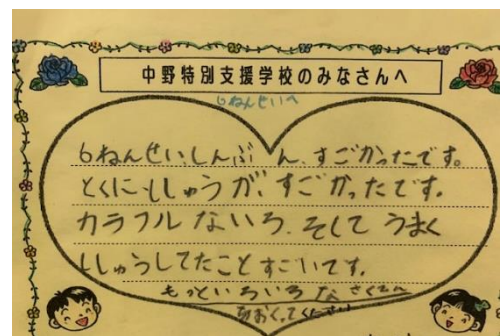 中野特別支援学校のみなさんへ
6ねんせいへ
6ねんせい、しんぶん、すごかったです。
とくに、ししゅうが、すごかったです。
カラフルないろ、そしてうまく
ししゅうしてたことすごいです。
もっといろいろなさくひん
おくってください